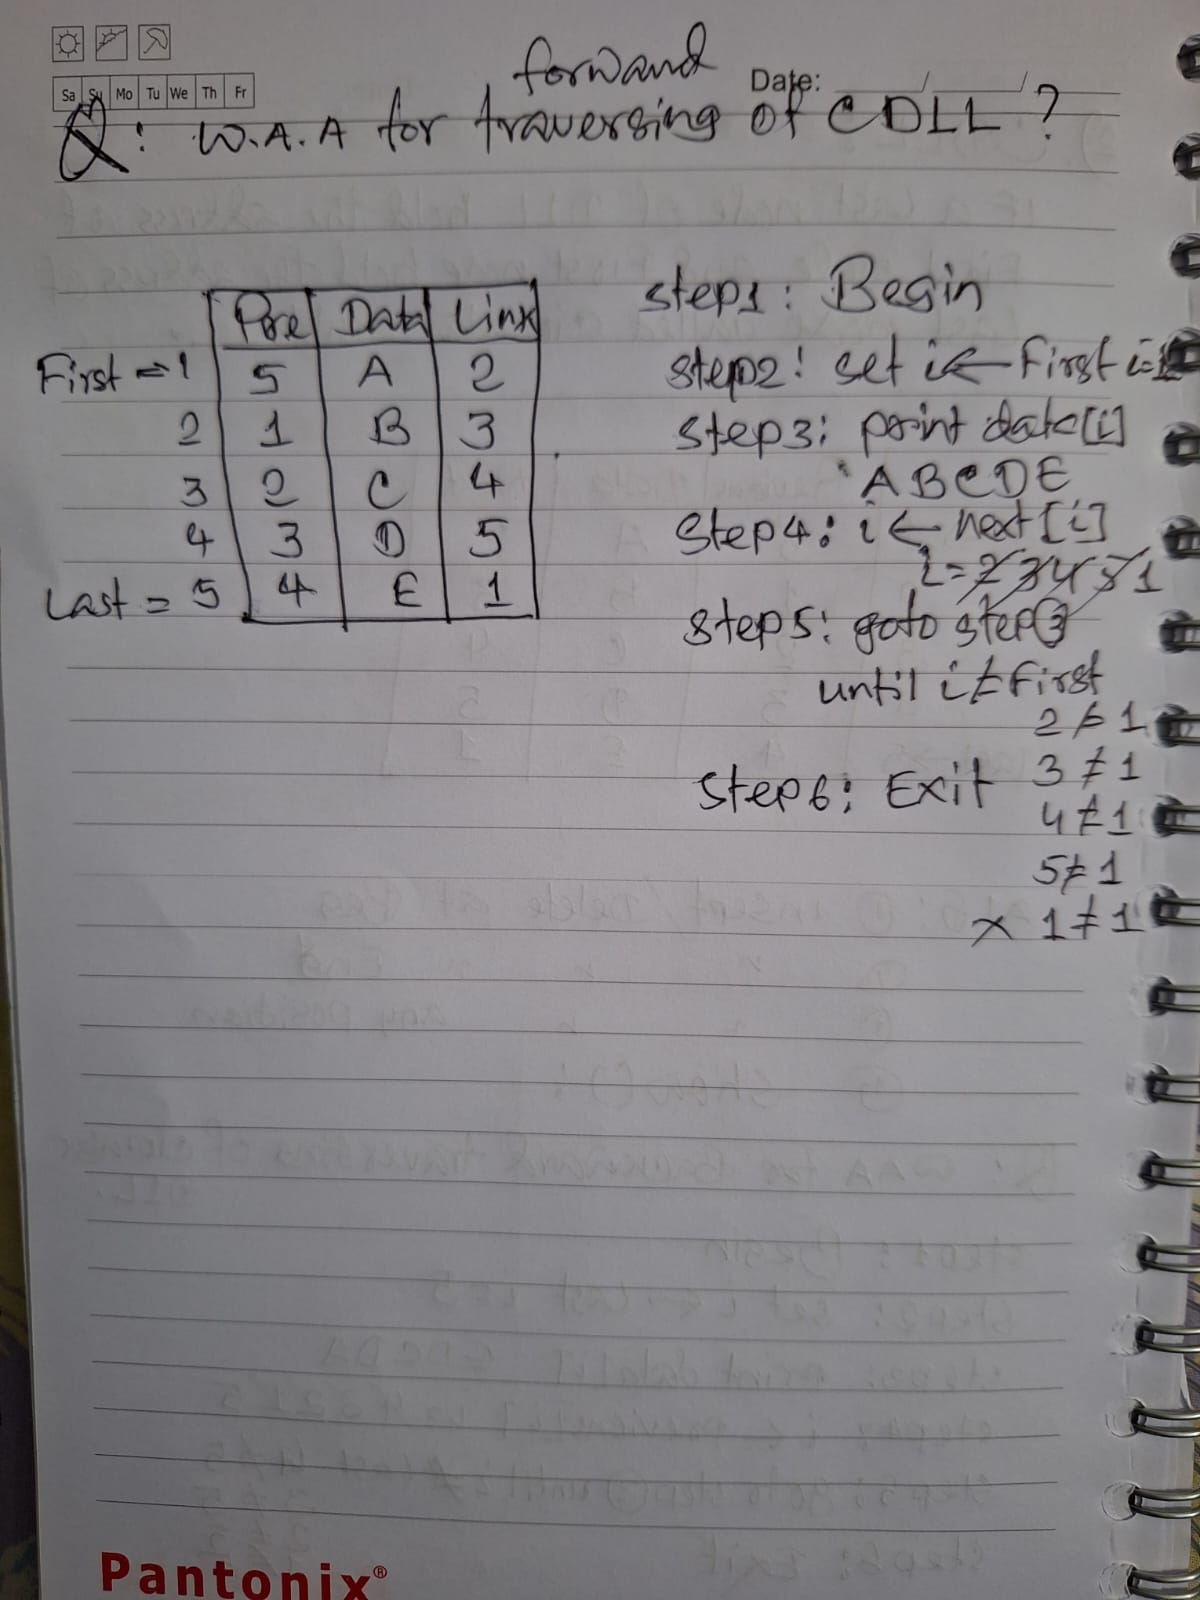 Sa Su Mo Tu We Th Fr
Date: / /
forward
Q: W.A.A for traversing of CDLL ?
Pre Data Link
First = 1 5 A 2
2 1 B 3
3 2 C 4
4 3 D 5
Last = 5 4 E 1
step1: Begin
step2: set i ← First i=1
step3: print data[i]
A B C D E
Step4: i ← next[i]
i = 2 3 4 5 1
Step5: goto step 3
until i ≠ First
2 ≠ 1
3 ≠ 1
4 ≠ 1
5 ≠ 1
x 1 ≠ 1
Step6: Exit
Pantonix®